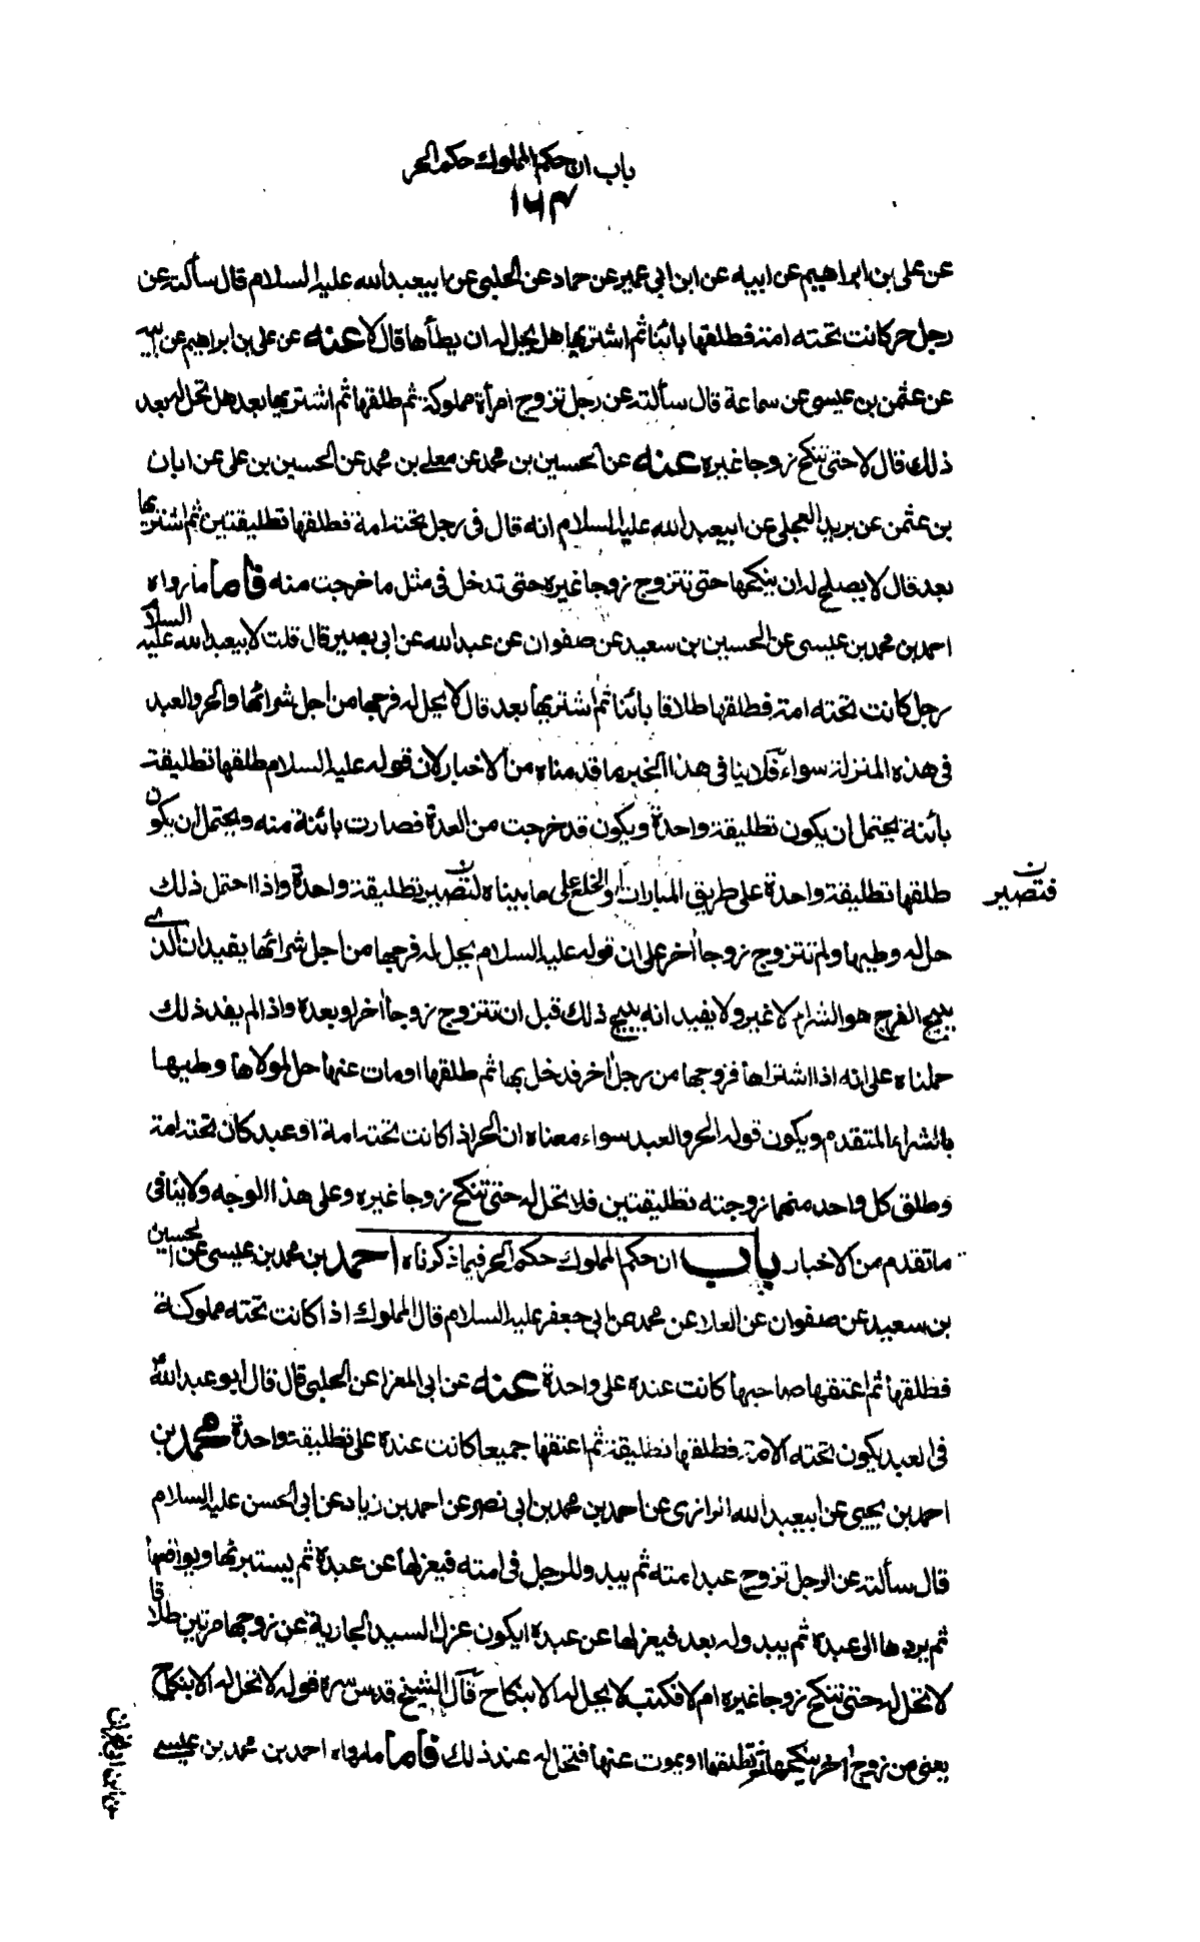 باب ان حكم المملوك حكم الحر
١٦٣
عن على بن ابراهيم عن ابيه عن ابن ابي عمير عن حماد عن الحلبي عن ابيعبد الله عليه السلام قال سألته عن
رجل حر كانت تحته امة فطلقها بائنا ثم اشتريها هل يحل له ان يطأها قال لا عنه عن على بن ابراهيم عن ابيه
عن عثمن بن عيسى عن سماعة قال سألته عن رجل تزوج امرأة مملوكة ثم طلقها ثم اشتريها بعد هل تحل له بعد
ذلك قال لا حتى تنكح زوجا غيره عنه عن الحسين بن محمد عن معلى بن محمد عن الحسين بن على عن ابان
بن عثمن عن بريد العجلى عن ابيعبد الله عليه السلام انه قال فى رجل تحته امة فطلقها تطليقتين ثم اشتريها
بعد قال لا يصلح له ان ينكحها حتى تتزوج زوجا غيره حتى تدخل فى مثل ما خرجت منه فاما ما رواه
احمد بن محمد بن عيسى عن الحسين بن سعيد عن صفوان عن عبد الله عن ابى بصير قال قلت لابيعبد الله عليه السلام
رجل كانت تحته امة فطلقها طلاقا بائنا ثم اشتريها بعد قال لا يحل له فرجها من اجل شرائها والحر والعبد
فى هذه المنزلة سواء فلا ينافى هذا الخبر ما قدمناه من الاخبار لان قوله عليه السلام طلقها تطليقة
بائنة يحتمل ان يكون تطليقة واحدة ويكون قد خرجت من العدة فصارت بائنة منه ويحتمل ان يكون
طلقها تطليقة واحدة على طريق المبارات او الخلع على ما بيناه لتصير تطليقة واحدة واذا احتمل ذلك
فتصير ن
حل له وطيها ولم تتزوج زوجا اخر على ان قوله عليه السلام يحل له فرجها من اجل شرائها يفيد ان الذى
يبيح الفرج هو الشراء لا غير ولا يفيد انه يبيح ذلك قبل ان تتزوج زوجا اخر او بعده واذا لم يفد ذلك
حملناه على انه اذا اشتراها فزوجها من رجل اخر فدخل بها ثم طلقها او مات عنها حل لمولاها وطيها
بالشراء المتقدم ويكون قوله الحر والعبد سواء معناه ان الحر اذا كانت تحته امة او عبد كان تحته امة
وطلق كل واحد منهما زوجته تطليقتين فلا تحل له حتى تنكح زوجا غيره وعلى هذا الوجه ولا ينافى
ما تقدم من الاخبار باب ان حكم المملوك حكم الحر فيما ذكرناه احمد بن محمد بن عيسى عن الحسين
بن سعيد عن صفوان عن العلا عن محمد عن ابى جعفر عليه السلام قال المملوك اذا كانت تحته مملوكة
فطلقها ثم اعتقها صاحبها كانت عنده على واحدة عنه عن ابى المعزا عن الحلبى قال قال ابو عبد الله ع
فى العبد يكون تحته الامة فطلقها تطليقة ثم اعتقها جميعا كانت عنده على تطليقة واحدة محمد بن
احمد بن يحيى عن ابيعبد الله الرازى عن احمد بن محمد بن ابى نصر عن احمد بن زياد عن ابى الحسن عليه السلام
قال سألته عن الرجل تزوج عبده امته ثم يبدو للرجل فى امته فيعزلها عن عبده ثم يستبرئها ويواقعها
ثم يردها الى عبده ثم يبدو له بعد فيعزلها عن عبده ايكون عزل السيد الجارية عن زوجها مرتين طلاقا
لا تحل له حتى تنكح زوجا غيره ام لا فكتب لا يحل له الا بنكاح قال الشيخ قدس سره قوله لا تحل له الا بنكاح
يعنى من زوج اخر ينكحها ثم تطلقها او يموت عنها فتحل له عند ذلك فاما ما رواه احمد بن محمد بن عيسى